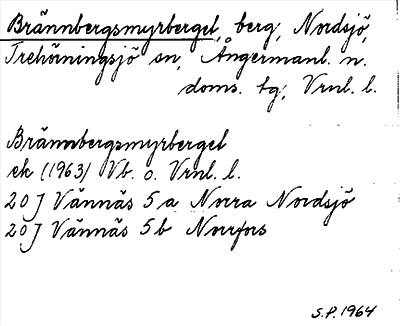 Brännbergsmyrberget, berg, Nordsjö,
Trehörningsjö sn, Ångermanl. n.
doms. tg, Vrnl. l.
Brännbergsmyrberget
ek (1963) Vb. o. Vrnl. l.
20 J Vännäs 5 a Norra Nordsjö
20 J Vännäs 5 b Norrfors
S.P. 1964